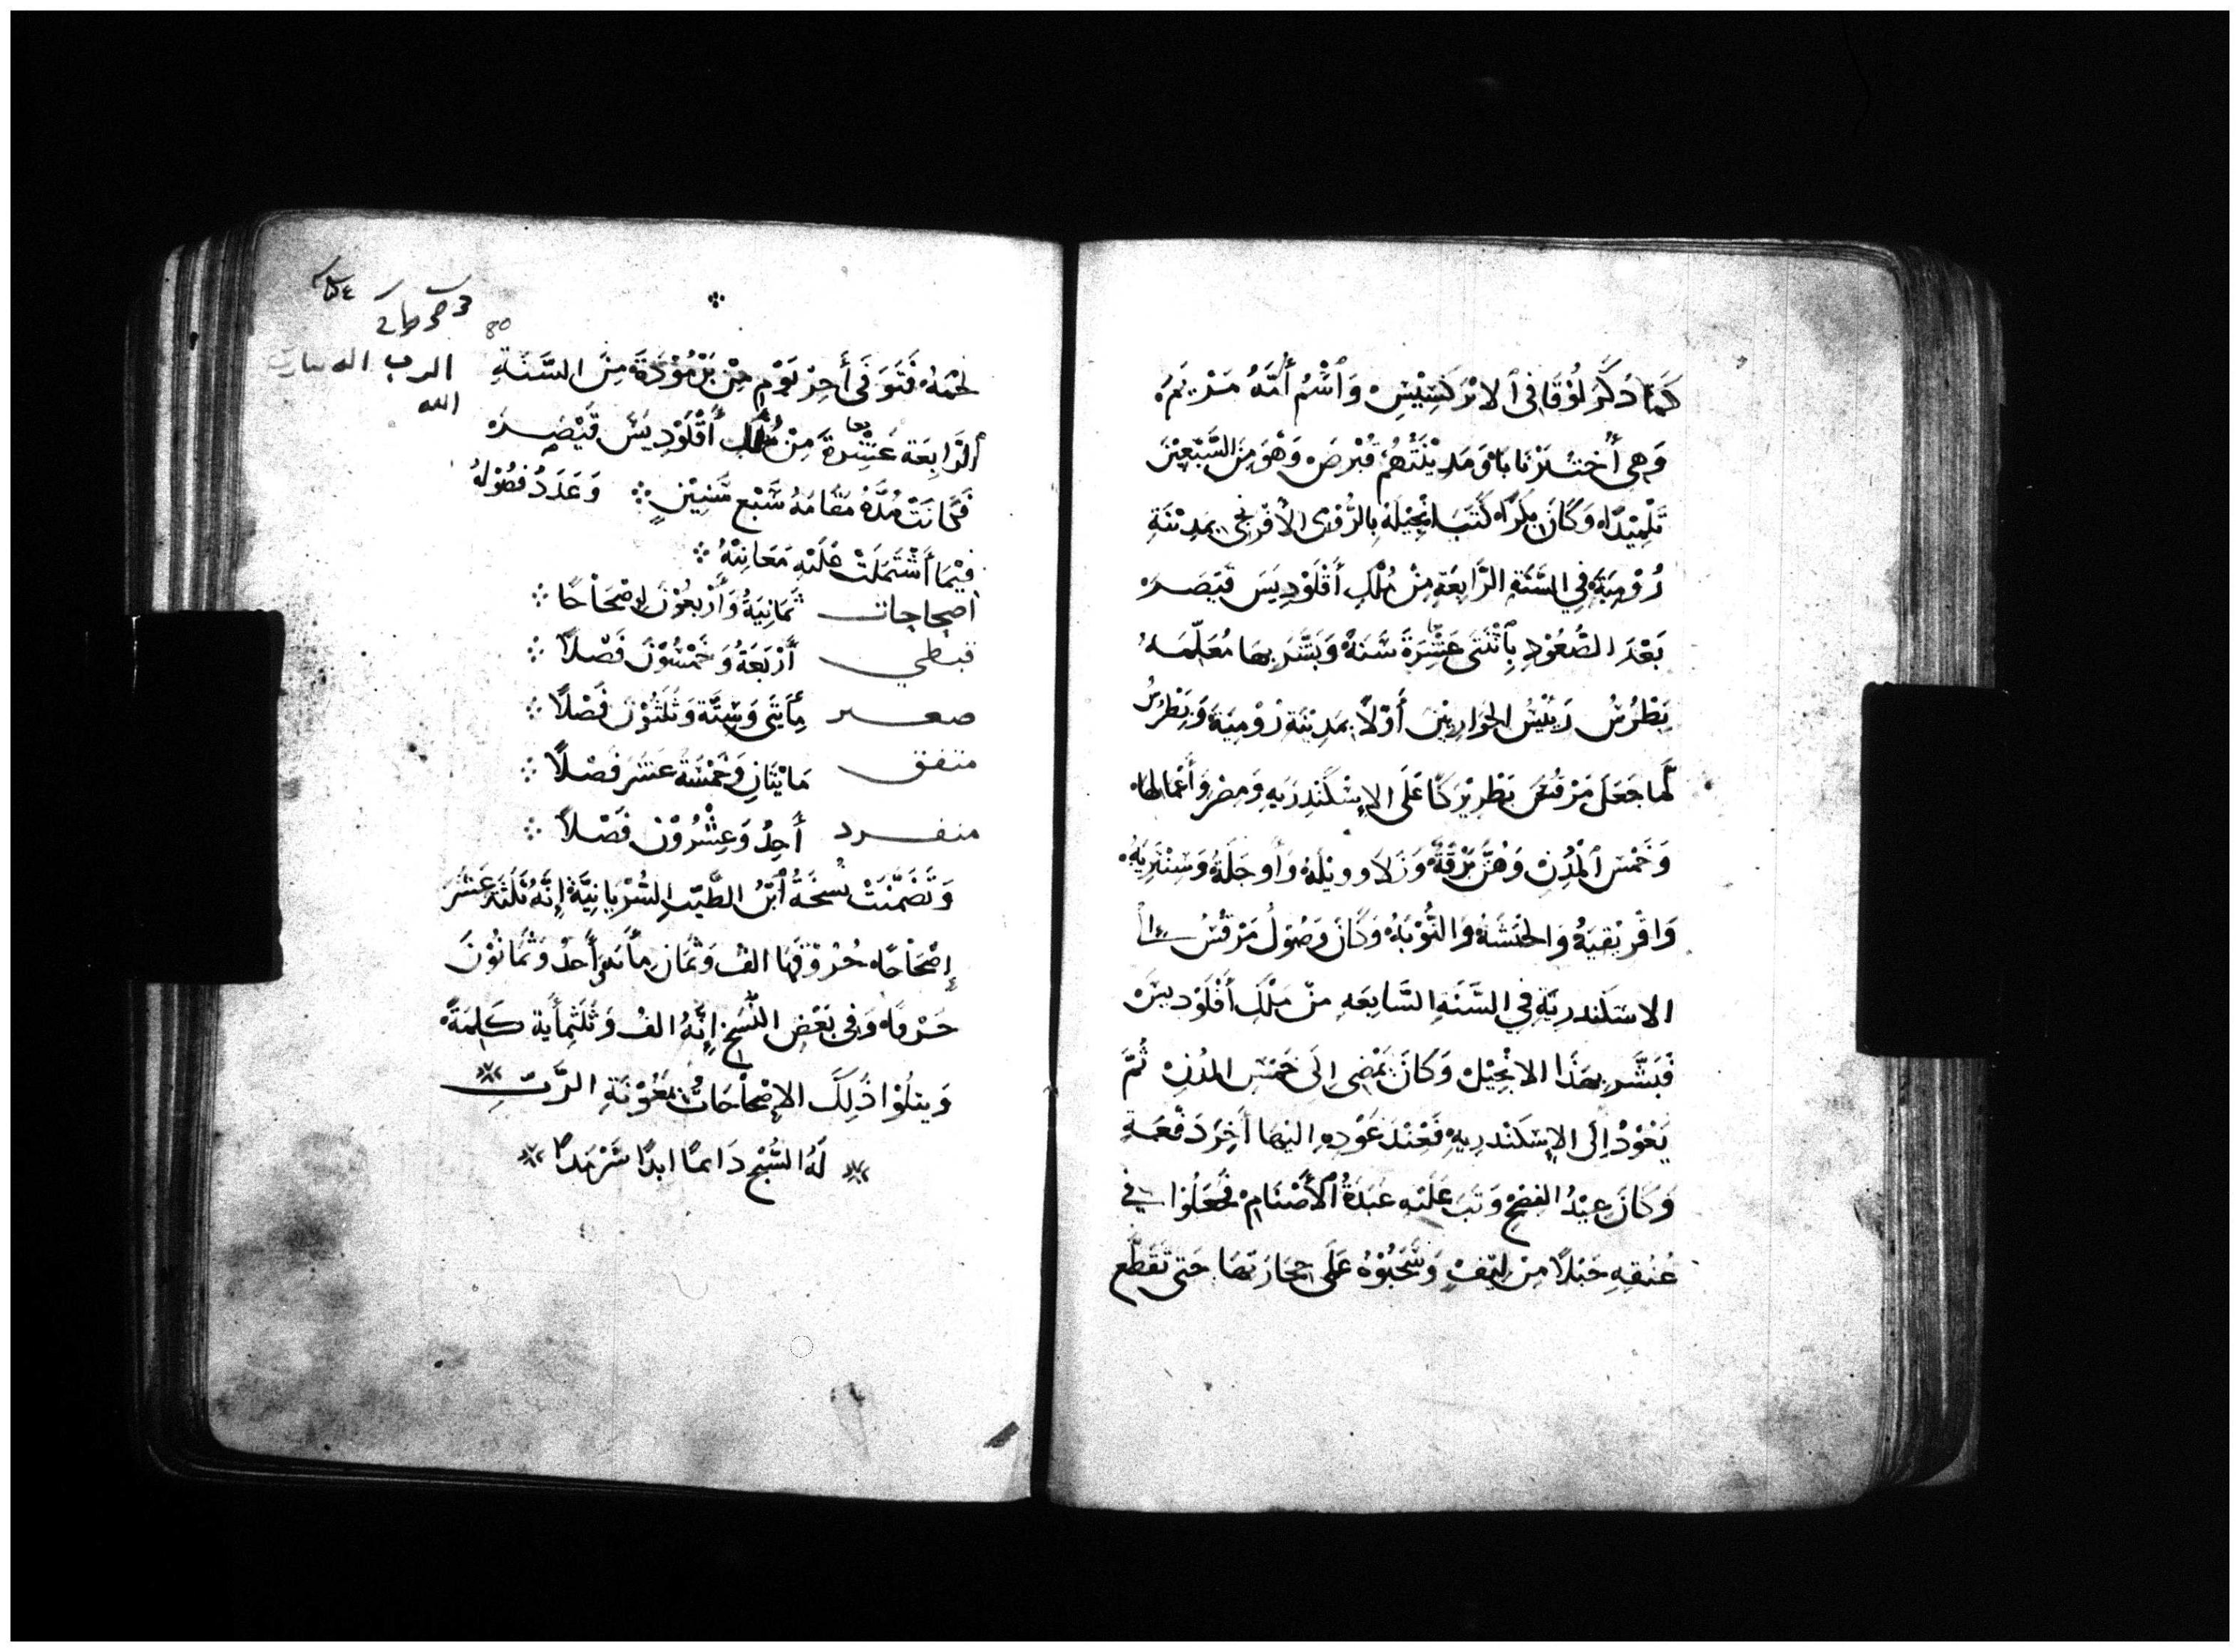 كَمَا ذَكَرَ لُوْقَا فِى ٱلابْرَكسِيْسِ وَٱسْمُ أُمِّهُ مَرْيَمُ
وَهِى أُخت بَرْنَابَا وَمَدِيْنَتُهُمْ قُبْرصْ وَهْوَ مِنَ السَّبْعِيْنَ
تَلْمِيْدًا وَكَانَ بِكرًا كَتَبَ انْجِيْلَهُ بِالرُّوْمِى الأفْرَنجِى بِمَدِيْنَةِ
رُوْمِيَةَ فِي السَّنَةِ الرَّابِعَةِ مِنْ مُلْكِ أَقْلَوْدِيَسَ قَيْصَرَ
بَعْدَ الصُّعُوْدِ بِاثْنَتَى عَشْرَةَ سَنَةً وَبَشَّرَ بِهَا مُعَلِّمَهُ
بَطْرُسُ رَئِيْسُ الحَوَارِيِيْنَ أَوْلاً بِمَدِيْنَةِ رُوْمِيَةَ وَبَطْرُسُ
لَمَا جَعَلَ مَرْقُسَ بَطْرِيْرَكًا عَلَى الإسْكَنْدِرَيهِ وَمِصْرِ وَأَعْمَالِهَا
وَخَمْسَ ٱلْمُدُنِ وَهُنَّ بَرْقَةَ وَزَلاَ وويْلَهْ وَأَوجَلَةُ وَسِنْتَرِيَهُ
وَافْرِيْقِيَهُ وَالحَبَشَهُ وَالنُّوْبَهُ وَكَانَ وَصُوْلُ مَرْقُسُ إلى
الاسَكَندرِيَّةِ فِي السَّنَهِ السَّابِعَهِ مِنْ مُلْكِ أَقْلَوْدِيسَ
فَبَشَّر بِهَذَا الانْجِيْلْ وَكَانَ يَمْضِى اِلَى خَمْسِ المُدُنِ ثُمَّ
يَعُوْدُ إِلَى الإسَكَنْدرِيهِ فَعِنْدَ عَوْدِهِ اليْهَا آخِرُ دَفْعَةِ
وَكَانَ عِيْدُ الفِصْحِ وَثَبَ عَلَيْهِ عَبَدَةُ ٱلأَصْنَامِ فَجَعَلُوْا فى
عُنُقِهِ حَبْلاً مِنْ لِيْفْ وَسَحَبُوْهُ عَلَى حِجَارَتِهَا حَتى تَقَطَّع
80
الرب
الله
لَحْمَهُ فَتَوَفَى أَخِرْ يَوْمٍ مِنْ بَرْمُوْدَةَ مِنَ السَّنَةِ
ٱلرَّابِعَة عَشْرَةَ مِنْ مُلك أَقْلَوْدِيَسَ قَيْصَرَ
فَكَانَتْ مُدَّةُ مُقَامَهُ سَبْعِ سِّنِيْنٍ وَعَدَدُ فُصُوْلِهُ
فِيْمَا أَشْتَمَلَتْ عَلَيْهِ مَعَانِيْهُ
اصحاحات ثَمَانِيَةُ وَأَرْبَعُوْنَ إِصْحَاحًا
قبطي أَرْبَعَةُ وَخَمْسُوْنَ فَصْلاً
صغير مِأَيَتَى وَسِتَّة وَثَلَثُوْنَ فَصْلاً
متفق مَايْتَانِ وَخَمْسَةُ عَشَرَ فَصْلاً
منفرد أَحِدُ وَعِشْرُوْن فَصْلاً
وَتَضَمَّنَتْ نُسخَةُ ٱبْنُ الطَّيّبِ السُّرْيَانِيَّة إِنَّهُ ثَلَثَةَ عَشَرَ
إِصْحَاحًا حُرُوْفَهَا الفُ وَثْمَان مِأَيَه وَأَحدُ وَثْمَانُوْنَ
حَرْفًا وَفى بَعْضِ النُّسَخِ إِنَّهُ الفُ وَثَلَثِمأَية كَلِمَةً
وَيتلُوْا ذَلِكَ الإصْحَاحَاتُ بمَعُوْنَةِ الرَّبّ
لَهُ السُّبْح دَاىمًا ابدًا سَّرْمَدًا